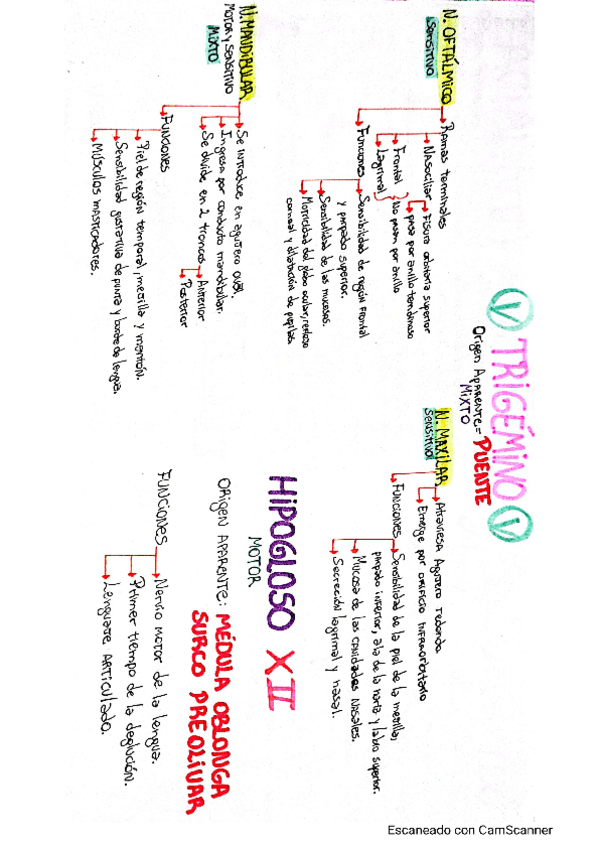 V TRIGÉMINO V
Origen Aparente = PUENTE
MIXTO
N. OFTÁLMICO
Sensitivo
Ramas terminales
Nasociliar
Fisura orbitaria superior
pasa por anillo tendinoso
Frontal
Lagrimal
No pasan por anillo
Funciones
Sensibilidad de región frontal
y parpado superior.
Sensibilidad de las mucosas.
Motricidad del globo ocular, reflejo
corneal y dilatación de pupilas
N. MAXILAR
Sensitivo
Atraviesa Agujero redondo
Emerge por orificio infraorbitario
Funciones
Sensibilidad de la piel de la mejilla,
parpado inferior, ala de la nariz y labio superior.
Mucosa de las cavidades nasales.
Secreción lagrimal y nasal.
N. MANDIBULAR
MOTOR Y SENSITIVO
MIXTO
Se introduce en agujero oval.
Ingresa por conducto mandibular.
Se divide en 2 troncos
Anterior
Posterior
FUNCIONES
Piel de región temporal, mejilla y mentón.
Sensibilidad gustativa de punta y borde de lengua.
Músculos masticadores.
HIPOGLOSO XII
MOTOR
ORIGEN APARENTE: MÉDULA OBLONGA
SURCO PREOLIVAR
FUNCIONES
Nervio motor de la lengua.
Primer tiempo de la deglución.
Lenguaje Articulado.
Escaneado con CamScanner